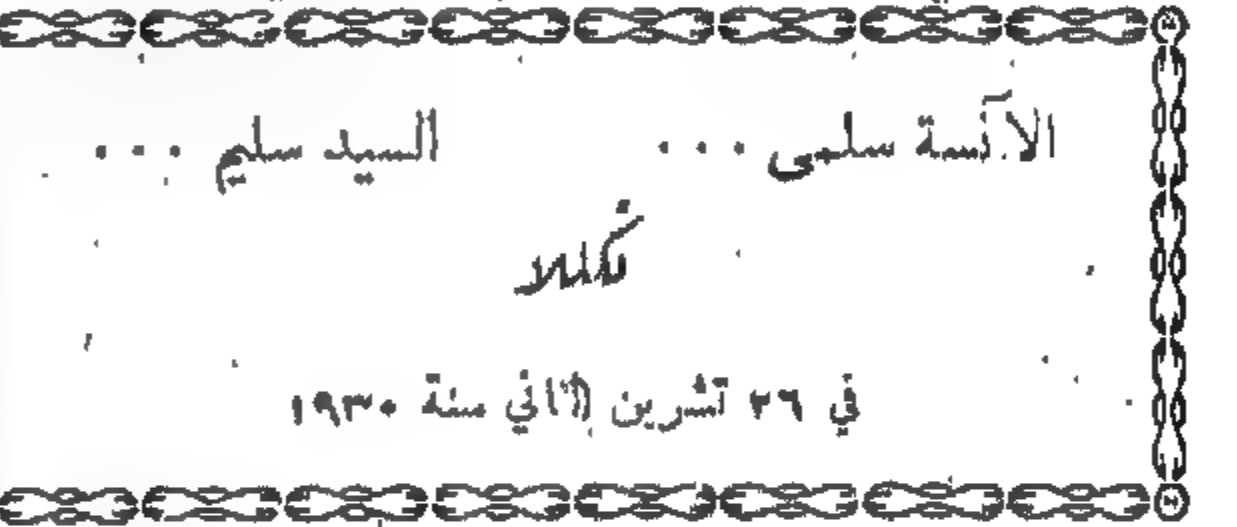 الآنسة سلمى ... السيد سليم ...
تكللا
في ٢٦ تشرين الثاني سنة ١٩٣٠